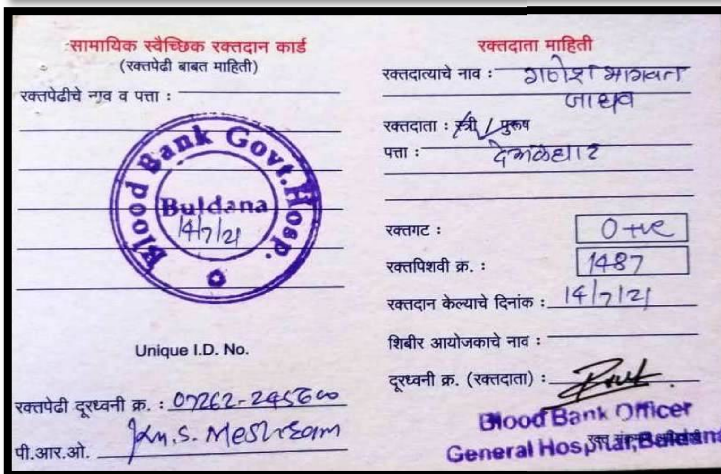 सामायिक स्वैच्छिक रक्तदान कार्ड
(रक्तपेढी बाबत माहिती)
रक्तपेढीचे नाव व पत्ता :
Blood Bank Govt. Hosp.
Buldana
14/7/21
Unique I.D. No.
रक्तपेढी दूरध्वनी क्र. : 07262-245600
पी.आर.ओ. S. Meshram
रक्तदाता माहिती
रक्तदात्याचे नाव : गणेश भागवत
जाधव
रक्तदाता : स्त्री / पुरूष
पत्ता : देऊळघाट
रक्तगट : O +ve
रक्तपिशवी क्र. : 1487
रक्तदान केल्याचे दिनांक : 14/7/21
शिबीर आयोजकाचे नाव :
दूरध्वनी क्र. (रक्तदाता) :
Blood Bank Officer
General Hospital, Buldana